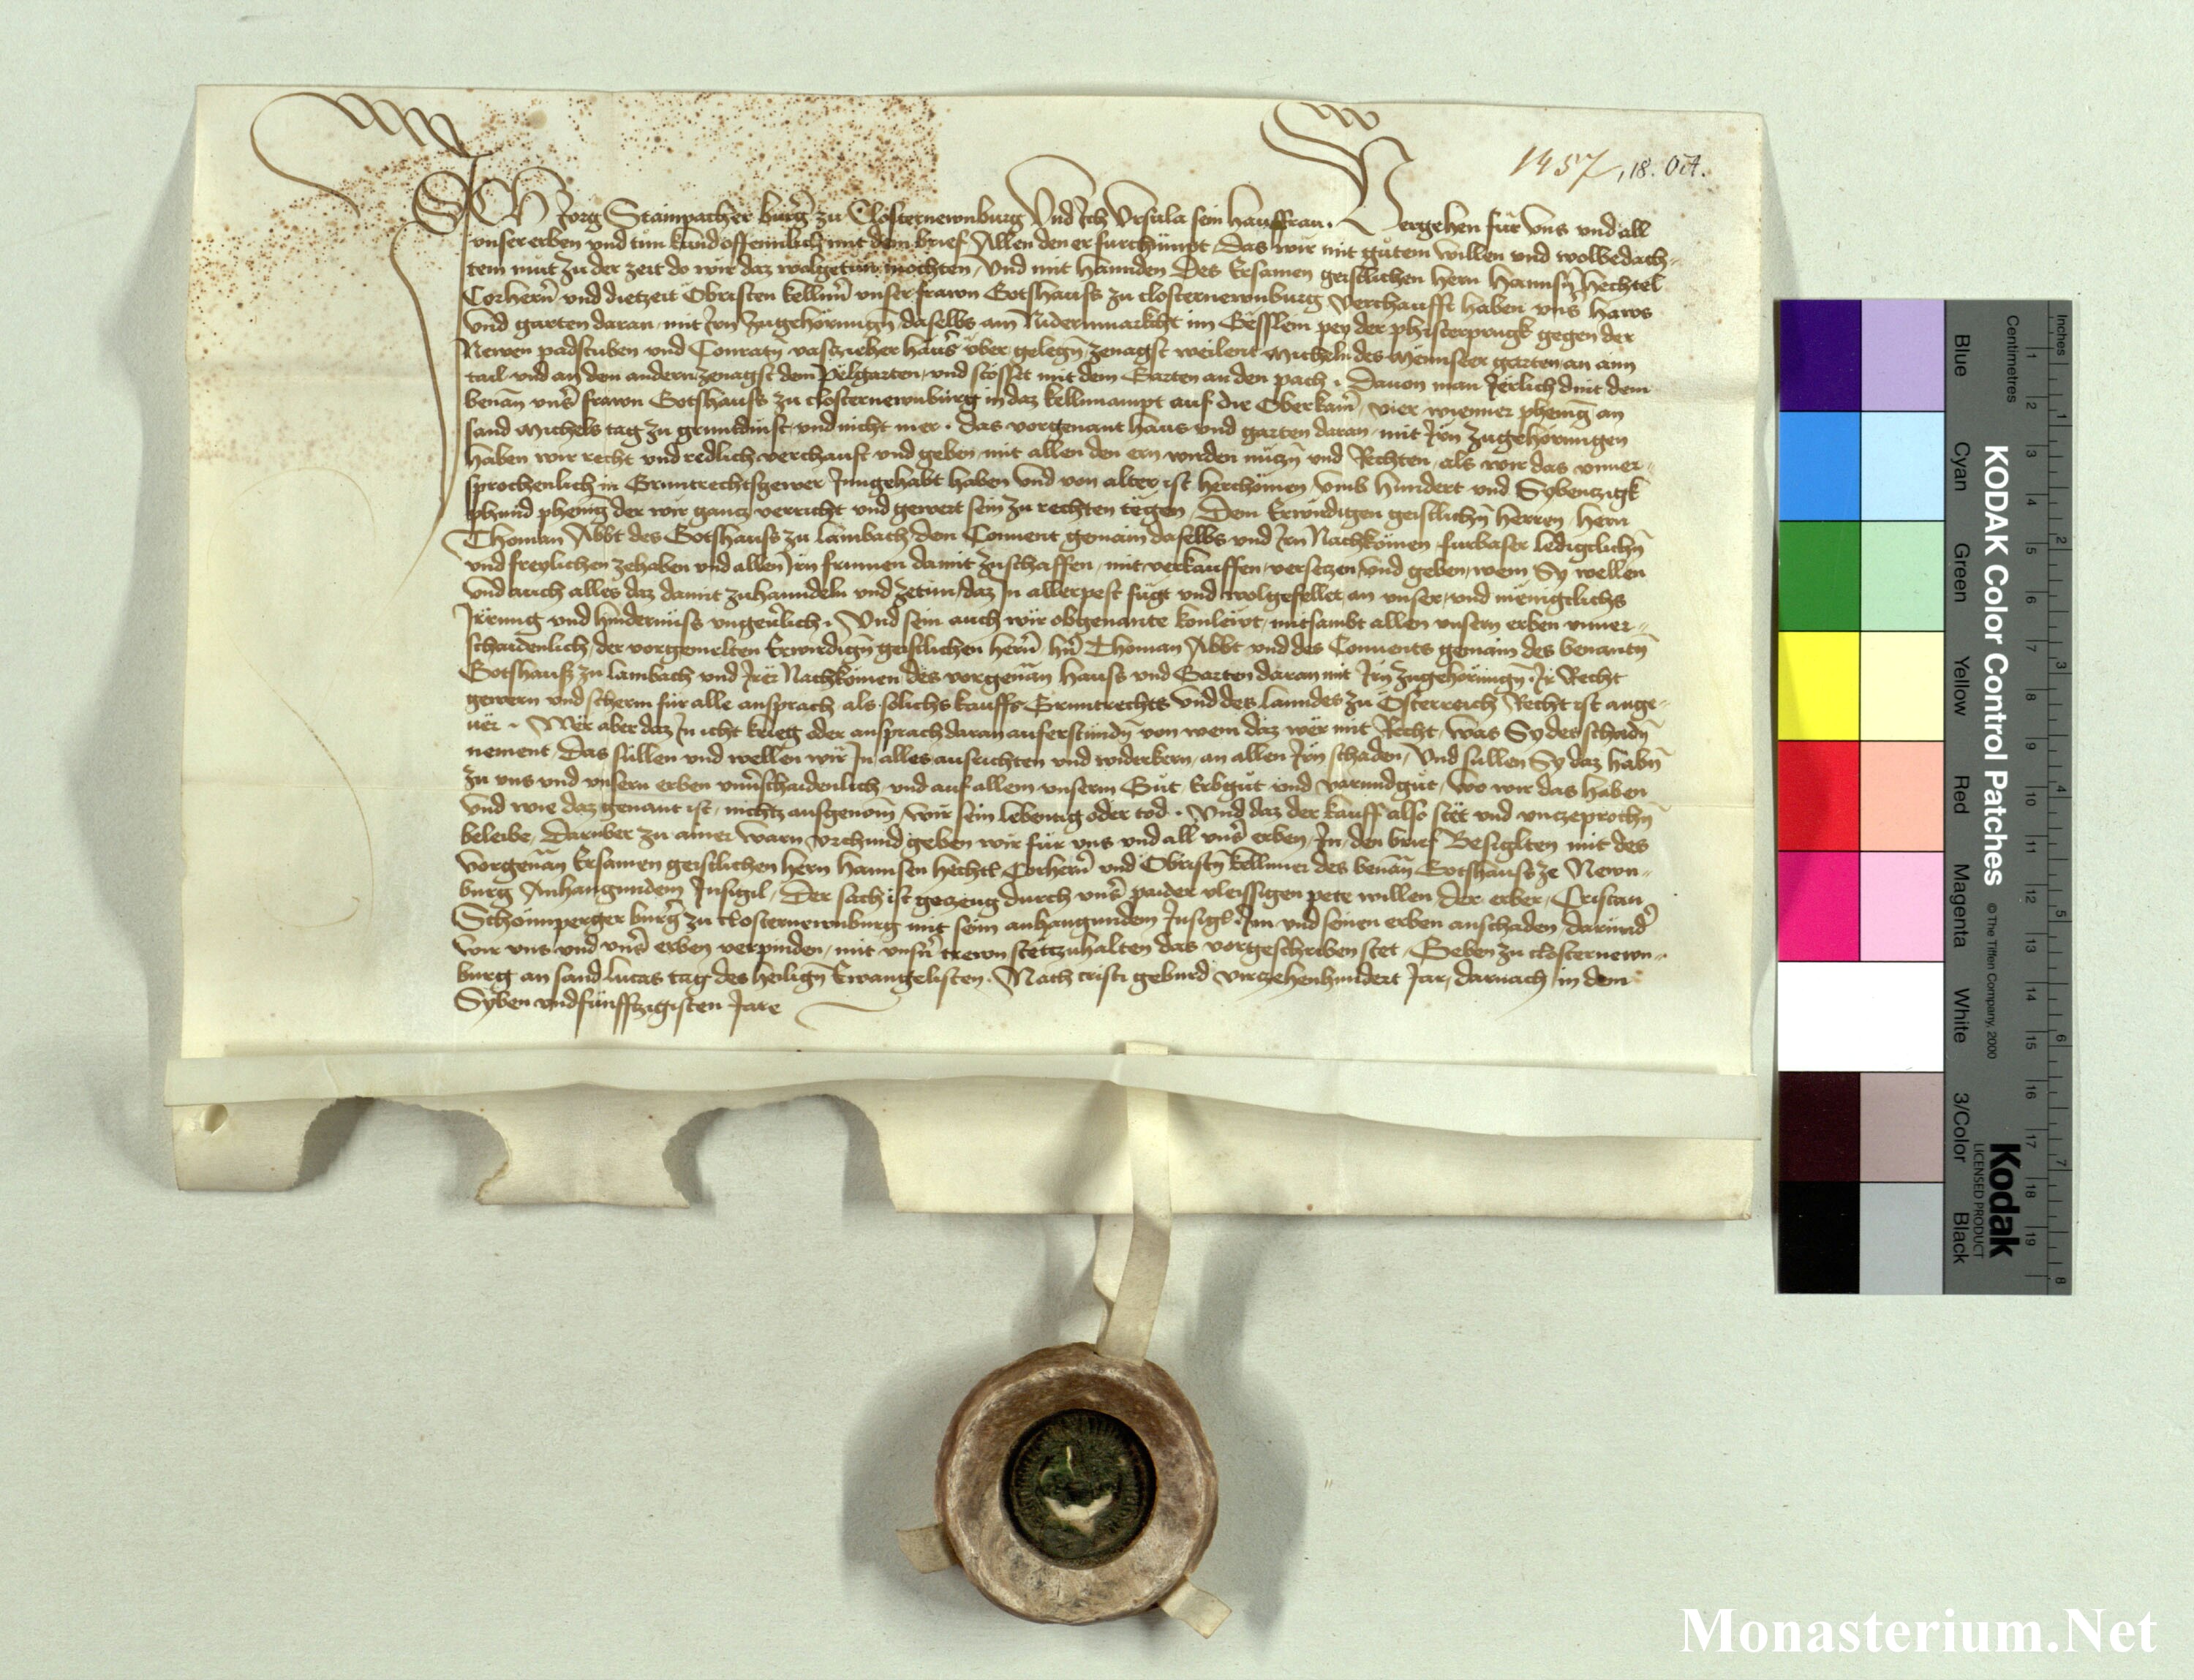 1457, 18. Oct.
ICH Jorg Stainpacher burḡ zu Closternewnburg Und Ich Ursula sein hausfrau. Vergehen für uns und all
unser erben und tun kund offennlich mit dem brief Allen den er furchumpt, Das wir mit gůtem willen und wolbedach-
tem můt zu der zeit do wir daz wolgetun mochten, Und mit hannden Des Ersamen geistlichen hern Hannsn̄ Hechtel
Corhern̄ und dietzeit Obristen kellnn̄ unser frawn Gotshauss zu closternewnburg Verchaufft haben uns̄ Haws
Und garten daran, mit Irn Zugehörungn̄ daselbs am Nidernmarkcht im Gësslein pey der phisterprugk gegen der
Newen padstuben und Conratn̄ vaszieher haus̄ über gelegn̄, zenagst weilent Micheln des Mennster garten an aim
tail und an dem andern zenagst dem Pelgarten, und stösset mit dem Garten an den pach. Dauon man Jërlich dint dem
benan̄ uns̄ frawn Gotshauss zu closternewnburg in daz kellnnampt auf die Oberkam̄, vier wienner pheniḡ an
sand Michels tag zu gruntdinst, und nicht mer. Das vorgenant haus und garten daran, mit Irn zugehorungen
haben wir recht und redlich verchauft und geben, mit allen den ern wirden nuczn̄ und Rechten, als wir das unuer-
sprochenlich in Gruntrechtsgewer Inngehabt haben Und von alter ist herchömen, Umb Hundert und Sybenczigk
phund pheniḡ der wir gancz verricht und gewert sein zu rechten tëgen, Dem Erwirdigen geistlichn̄ herren, hern
Thoman Abbt des Gotshauss zu Lambach, dem Conuent gemain daselbs und Irn Nachkömen furbaser ledigclichn̄
und freylichen zehaben und allen Irn frumen damit zuschaffen, mit verkauffen, versetzen, und geben, wem Sy wellen
Und auch alles daz damit zuhanndeln und zetun, daz In allerpest fügt und wolgefellet, an unser, und menigclichs
Irrung und hindernüss ungeu̇erlich. Und sein auch wir obgenante konlewt, mitsambt allen unsern erben unuer-
schaidenlich, der vorgemelten Erwirdign̄ geistlichen hern̄ hn̄ Thoman Abbt und des Conuents gemain des benantn̄
Gotshauss zu lambach und Irer Nachkömen des vorgenan̄ Hauss und Garten daran mit Irn zugehörungn̄. Ir Recht
gewern und scherm für alle ansprach als solichs kauffs Gruntrechts Und des lanndes zu Österreich Recht ist ange-
uër. Wër aber daz In icht krieg oder ansprach daran auferstündn̄ von wem daz wër mit Recht, Was Sy des schadn̄
nement, Das süllen und wellen wir In alles ausrichten und widerkern, an allen Irn schaden, Und sullen Sy daz habn̄
zu uns und unsern erben unu̇schaidenlich, und auf allem unserm Gut Erbgůt und varundgůt, wo wir das haben
Und wie daz genant ist, nichtz ausgenom̄, wir sein lebentig oder tod. Und daz der kauff also stët und unczeprochn̄
beleibe, Darüber zu ainer warn Urchund geben wir für uns und all uns̄ erben, In, den brief Besiglten mit des
Vorgenan̄ Ersamen geistlichen hern Hannsen Hechtl Corhern̄ und Obristn̄ kellnner des benan̄ Gotshauss ze Newn-
burg Anhangundem Insigil, Der sach ist geczeug durch uns̄ paider vleissigen pete willen der erber, Cristan
Schöimperger burḡ zu closternewnburg mit seim anhangundem Insigl. Im und seinen erben anschaden, darund̄
wir uns und uns̄ erben verpinden, mit unsn̄ trewn stëtzuhalten das vorgeschriben stet, Geben zu closternewn-
burg an sand lucas tag des heilign̄ Ewangelisten. Nach cristi geburd virzehenhundert Jar, darnach, in dem
Syben undfunfftzigisten Jare
KODAK Color Control Patches © The Tiffen Company, 2000
Kodak
LICENSED PRODUCT
Inches
Centimetres
Blue Cyan Green Yellow Red Magenta White 3/Color Black
1 2 3 4 5 6 7 8 9 10 11 12 13 14 15 16 17 18 19
1 2 3 4 5 6 7 8
Monasterium.Net